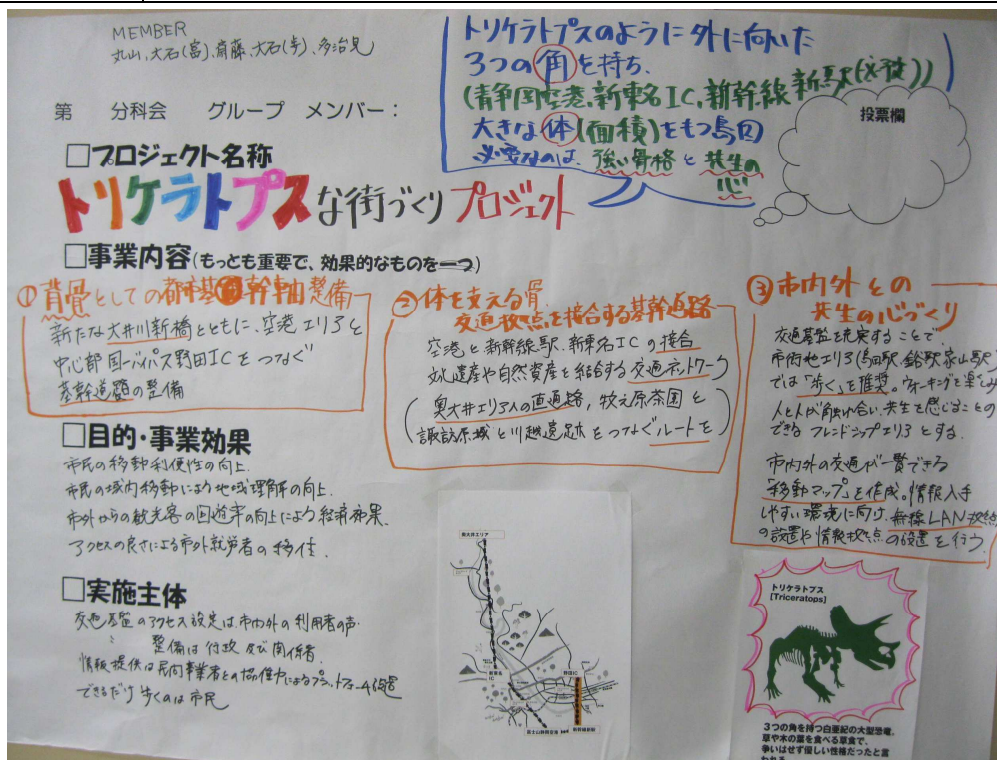 MEMBER
丸山,大石(富),斎藤,大石(歩),多治見
トリケラトプスのように外に向いた
3つの角を持ち、
(静岡空港、新東名IC、新幹線新駅(必徒))
大きな体(面積)をもつ島田
必要なのは、強い骨格と共生の
心
投票欄
第 分科会 グループ メンバー:
□プロジェクト名称
トリケラトプスな街づくりプロジェクト
□事業内容(もっとも重要で、効果的なものを一つ)
①背骨としての都市基幹軸整備
新たな大井川新橋とともに、空港エリアと
中心部国一バイパス野田ICをつなぐ
基幹道路の整備
②体を支える骨
交通拠点を接合する基幹道路
空港と新幹線駅、新東名ICの接合
文化遺産や自然資産と結合する交通ネットワーク
(奥大井エリアへの直通路,牧之原茶園と
諏訪原城と川越遺跡をつなぐルートを)
③市内外との
共生の心づくり
交通基盤を充実することで、
市街地エリア(島田駅、金谷駅、家山駅)
では「歩く」を推奨。ウォーキングを楽しみ
人と人が触れ合い、共生を感じることの
できるフレンドシップエリアとする。
市内外の交通が一覧できる
「移動マップ」を作成。情報入手
しやすい環境に向け、無線LAN拠点
の設置や情報拠点の設置を行う。
□目的・事業効果
市民の移動利便性の向上.
市民の域内移動により地域理解の向上.
市外からの観光客の回遊率の向上により経済効果.
アクセスの良さによる市外就労者の移住.
□実施主体
交通基盤のアクセス設定は、市内外の利用者の声.
〃 整備は行政及び関係者.
情報提供は民間事業者との協働によるプラットフォーム設置
できるだけ歩くのは市民
奥大井エリア
新東名
IC
野田IC
富士山静岡空港
新幹線新駅
トリケラトプス
[Triceratops]
3つの角を持つ白亜紀の大型恐竜。
草や木の葉を食べる草食で、
争いはせず優しい性格だったと言
われる